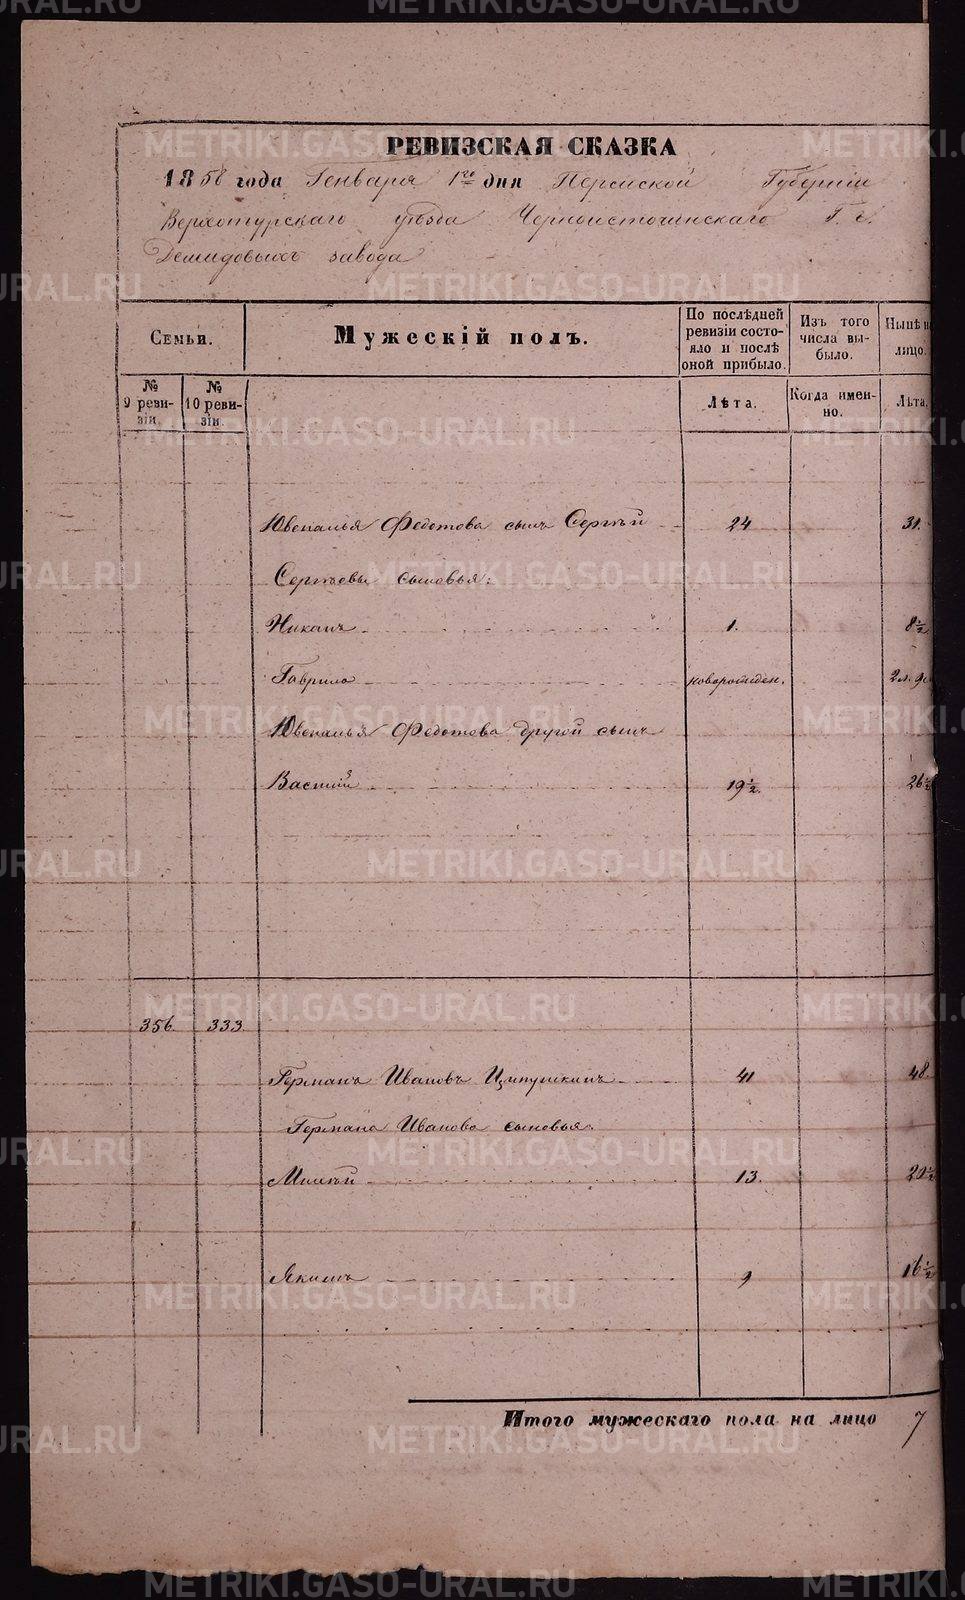 РЕВИЗСКАЯ СКАЗКА
1858 года Генваря 1го дня Пермской Губернiи
Верхотурскаго уѣзда Черноисточинскаго Г. г.
Демидовыхъ завода
Семьи.
Мужескiй полъ.
По послѣдней ревизiи состояло и послѣ оной прибыло.
Изъ того числа выбыло.
Нынѣ н
лицо.
№ 9 ревизiи.
№ 10 ревизiи.
Лѣта.
Когда именно.
Лѣта.
Ювеналья Федотова сынъ Сергѣй 24 31.
Сергѣевы сыновья:
Никанъ 1. 8½
Гаврило новорожден. 2 л. 9
Ювеналья Федотова другой сынъ
Василiй 19½. 26½
356 333
Германъ Ивановъ Ципушкинъ 41 48.
Германа Иванова сыновья:
13. 20½
Якимъ 9 16½
Итого мужескаго пола на лицо 7
METRIKI.GASO-URAL.RU